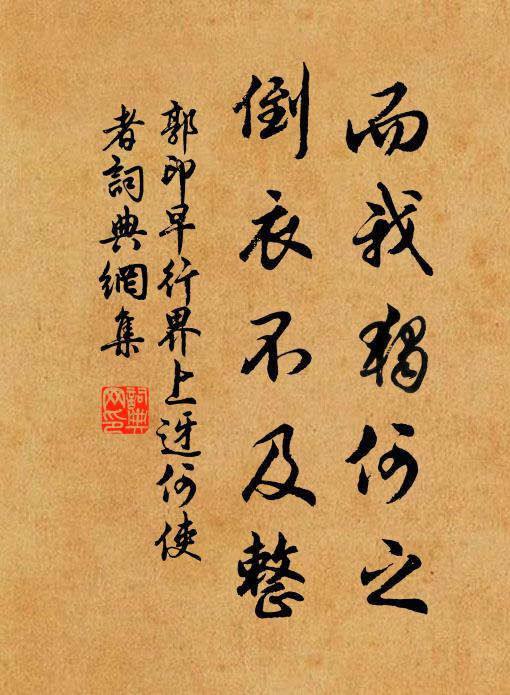 而我獨何之
倒衣不及整
郭印早行界上迓何使
者詞典網集
詞典
网印